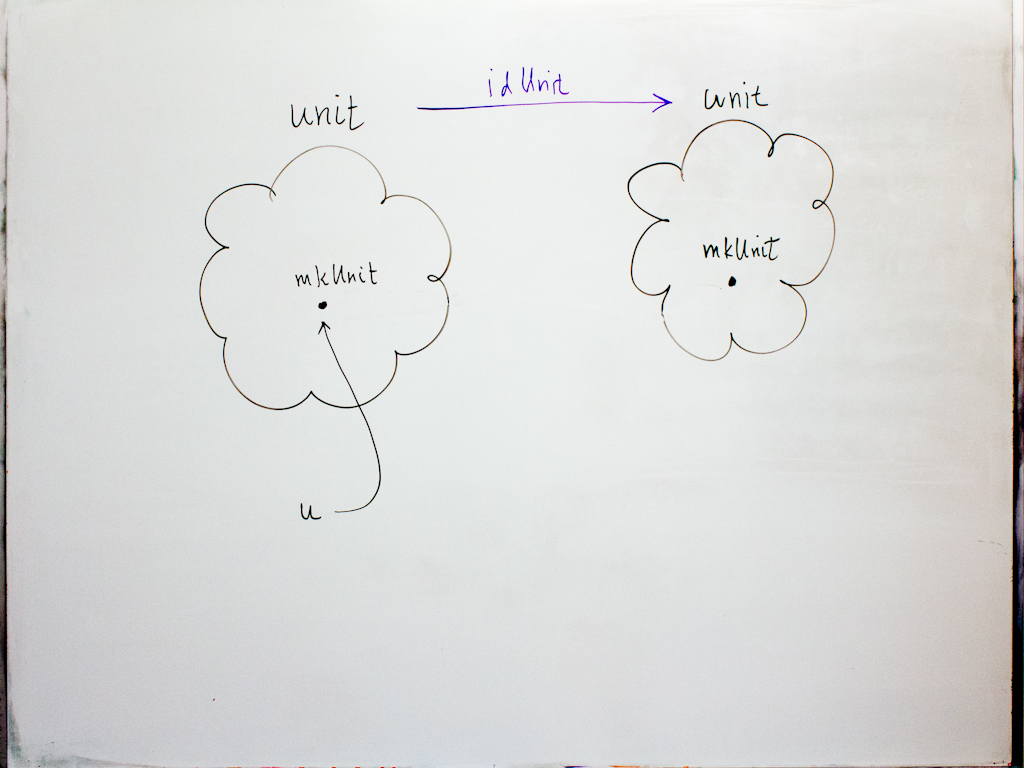 unit
idUnit
unit
mkUnit
mkUnit
u